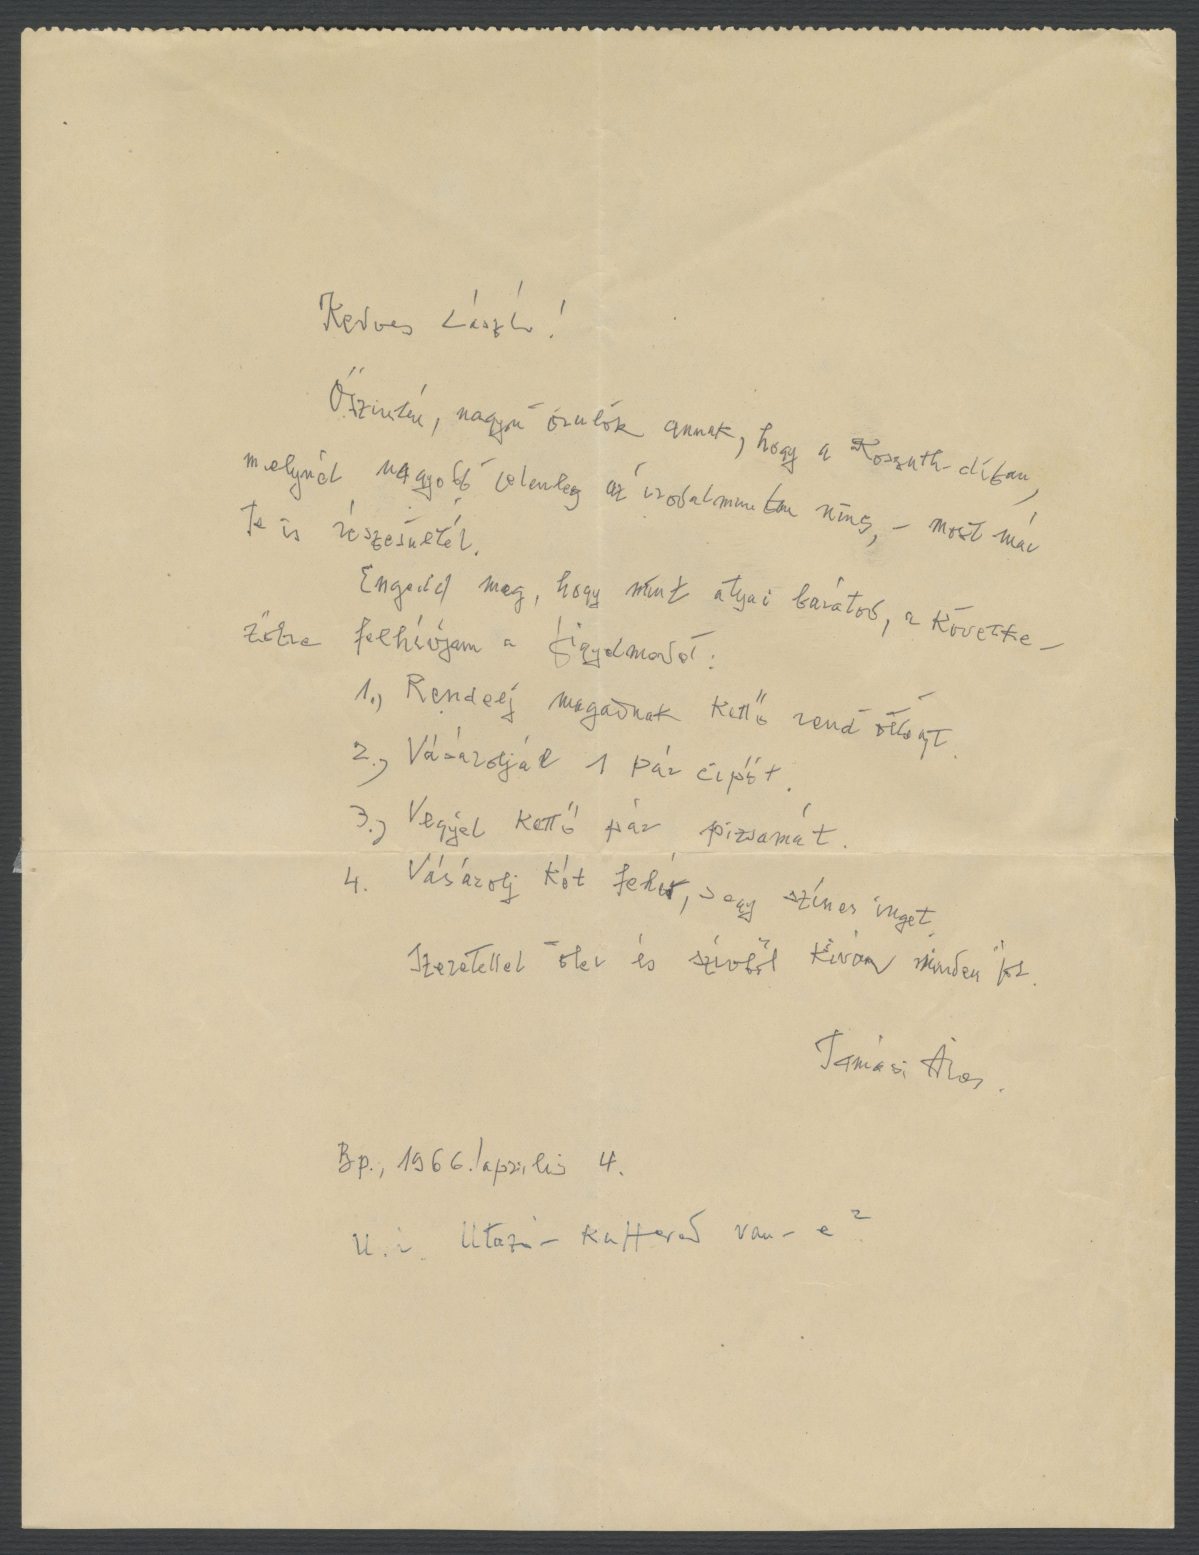 Kedves László!
Őszintén, nagyon örülök annak, hogy a Koszuth-díjban,
melynél nagyobb jelenleg az irodalmunkban nincs, – most már
Te is részesültél.
Engedd meg, hogy mint atyai barátod, a követke-
zőkre felhívjam a figyelmedet:
1., Rendelj magadnak kettő rend öltönyt.
2., Vásároljál 1 pár cipőt.
3., Vegyél kettő pár pizsamát.
4. Vásárolj két fehér, s egy színes inget.
Szeretettel ölel és szívből kíván minden jót.
Tamási Áron.
Bp., 1966. április 4.
U.i. Utazó-kuffered van-e?